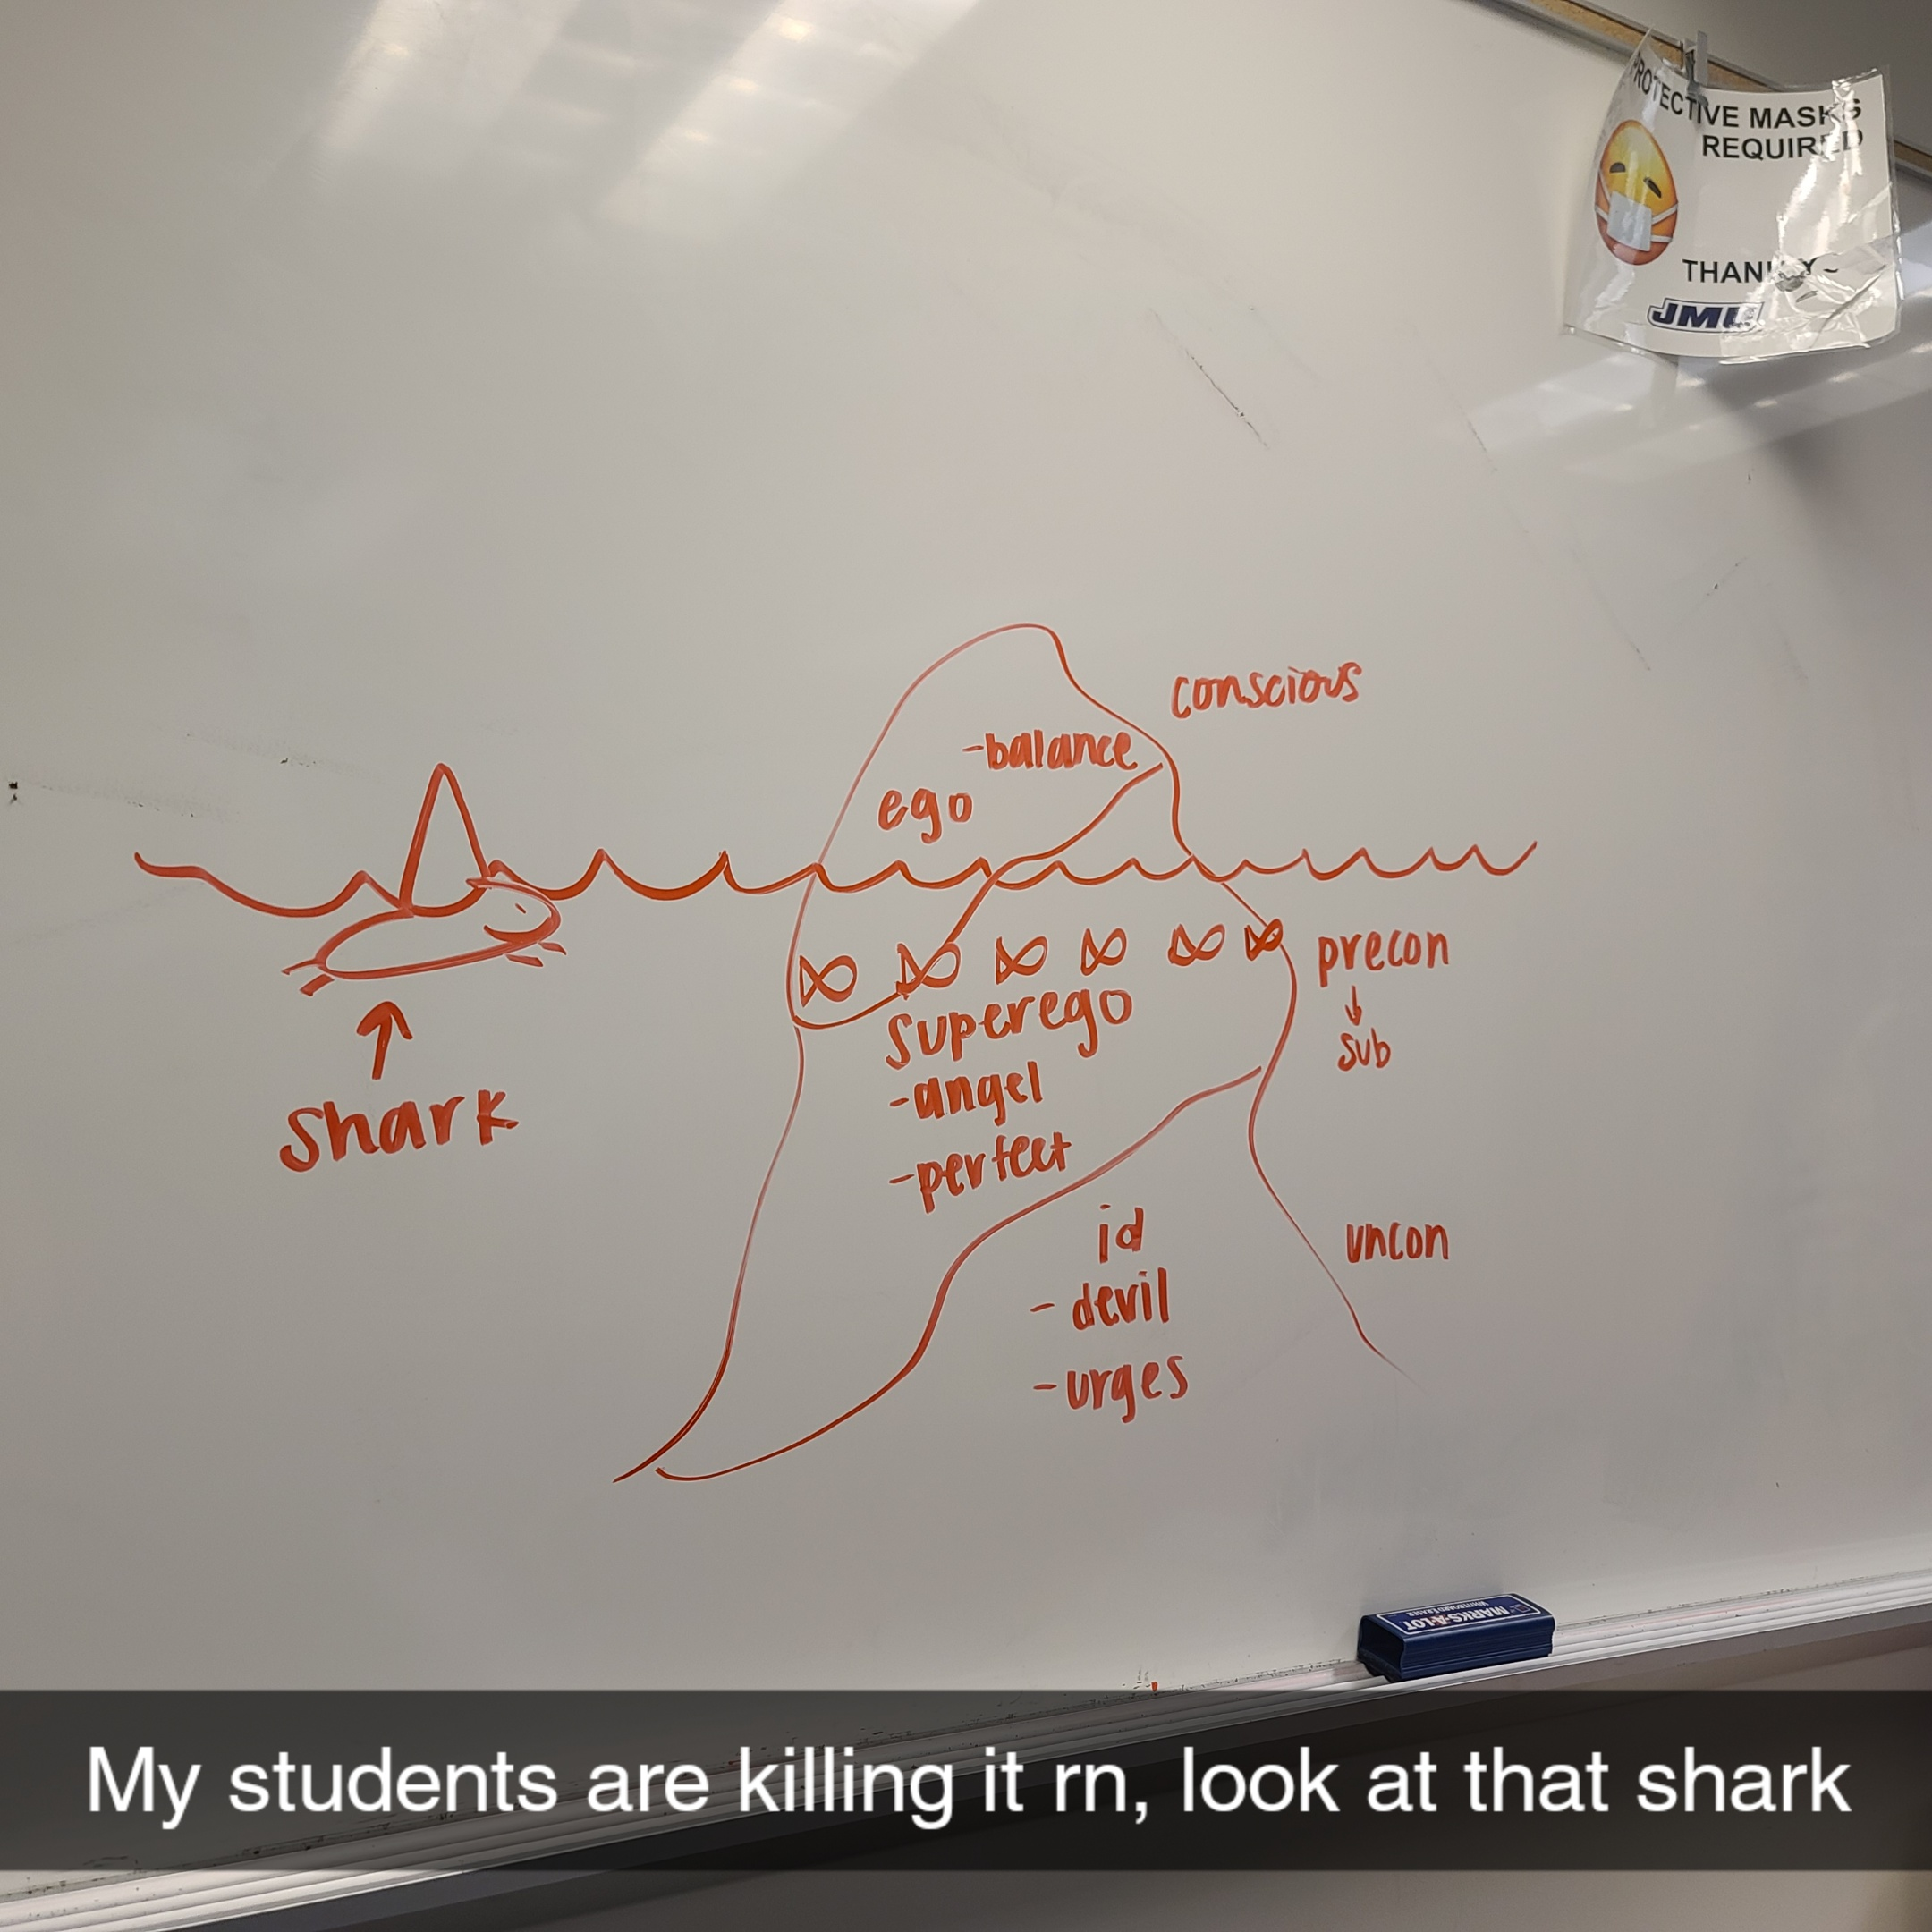 PROTECTIVE MASKS
REQUIRED
THANK
JMU
conscious
-balance
ego
precon
sub
superego
-angel
-perfect
shark
id
- devil
-urges
uncon
MARKS-A-LOT
WHITEBOARD ERASER
My students are killing it rn, look at that shark